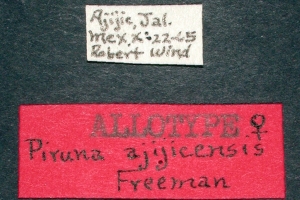 Ajijic, Jal.
Mex. X-22-65
Robert Wind
ALLOTYPE ♀
Piruna ajijicensis
Freeman